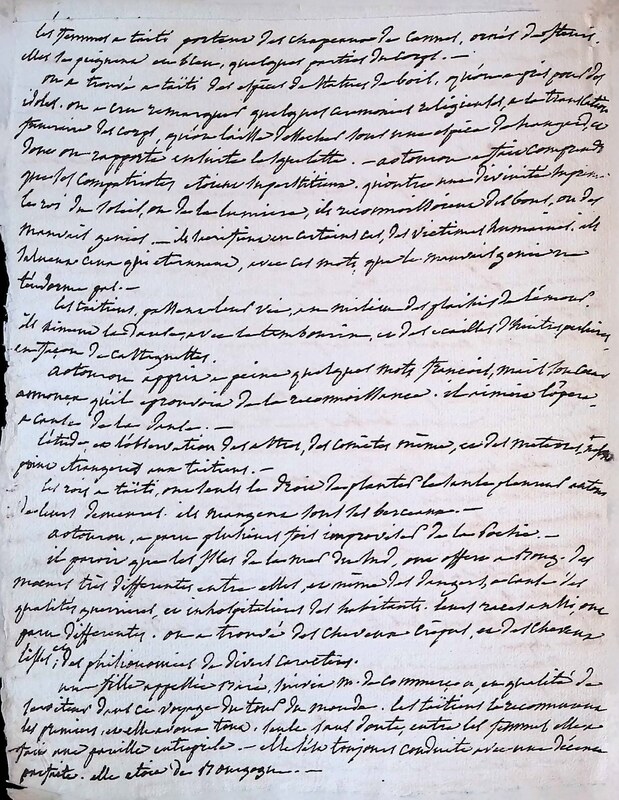 les femmes a taiti portent des chapeaux de cannes, ornés de fleurs.
elles se peignent en bleu, quelques parties du corps. —
on a trouvé a taiti des especes de statues de bois, qu'on a pris pour des
idoles. on a cru remarquer quelques ceremonies religieuses, a la translation
funeraire des corps, qu'on laisse dessecher sous une espece de hangard, et
dont on rapporte ensuite le squelette. — aotourou a fait comprendre
que ses compatriotes etoient superstitieux. qu'outre une divinité suprème
le roi du soleil, ou de la lumiere, ils reconnoissoient des bons, ou des
mauvais genies. — ils sacrifient en certains cas, des victimes humaines. ils
saluent ceux qui eternuent, avec ces mots, que le mauvais genie ne
t'endorme pas. —
les taitiens, passent leur vie, au milieu des plaisirs de l'amour.
ils aiment la danse, avec le tambourin, et des ecailles d'huitres perlieres
en façon de castagnettes.
aotourou apprit a peine quelques mots françois, mais son coeur
annonça qu'il eprouvoit de la reconnoissance. il aimoit l'opera
a cause de la danse. —
l'étude et l'observation des astres, des comètes même, et des meteores,
point etrangeres aux taitiens. —
les rois a taïti, ont seuls le droit de planter le saule pleureur autour
de leurs demeures. ils mangent sous les berceaux. —
aotourou, a paru plusieurs fois improviser de la poesie. —
il paroit que les isles de la mer du sud, ont offert a Boug. des
moeurs très differentes entre elles, et même des dangers, a cause des
qualités guerrieres et inhospitalieres des habitants. leurs races aussi, ont
paru differentes. on a trouvé des cheveux crépus, et des cheveux
lisses, et des phisionomies de divers caracteres.
une fille appellée Baré, suivit m. de commerçon, en qualité de
serviteur dans ce voyage du tour du monde. les taitiens la reconnurent
les premiers, et elle avoua tout. seule sans doute, entre les femmes elle a
fait une pareille entreprise — elle s'est toujours conduite avec une décence
parfaite. elle etoit de Bourgogne. —